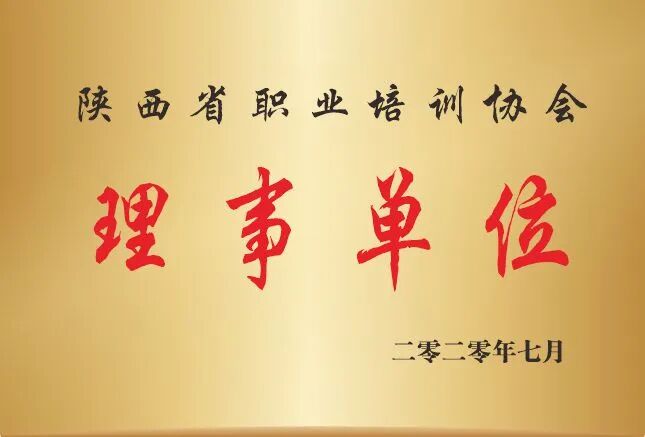 陕西省职业培训协会
理事单位
二零二零年七月